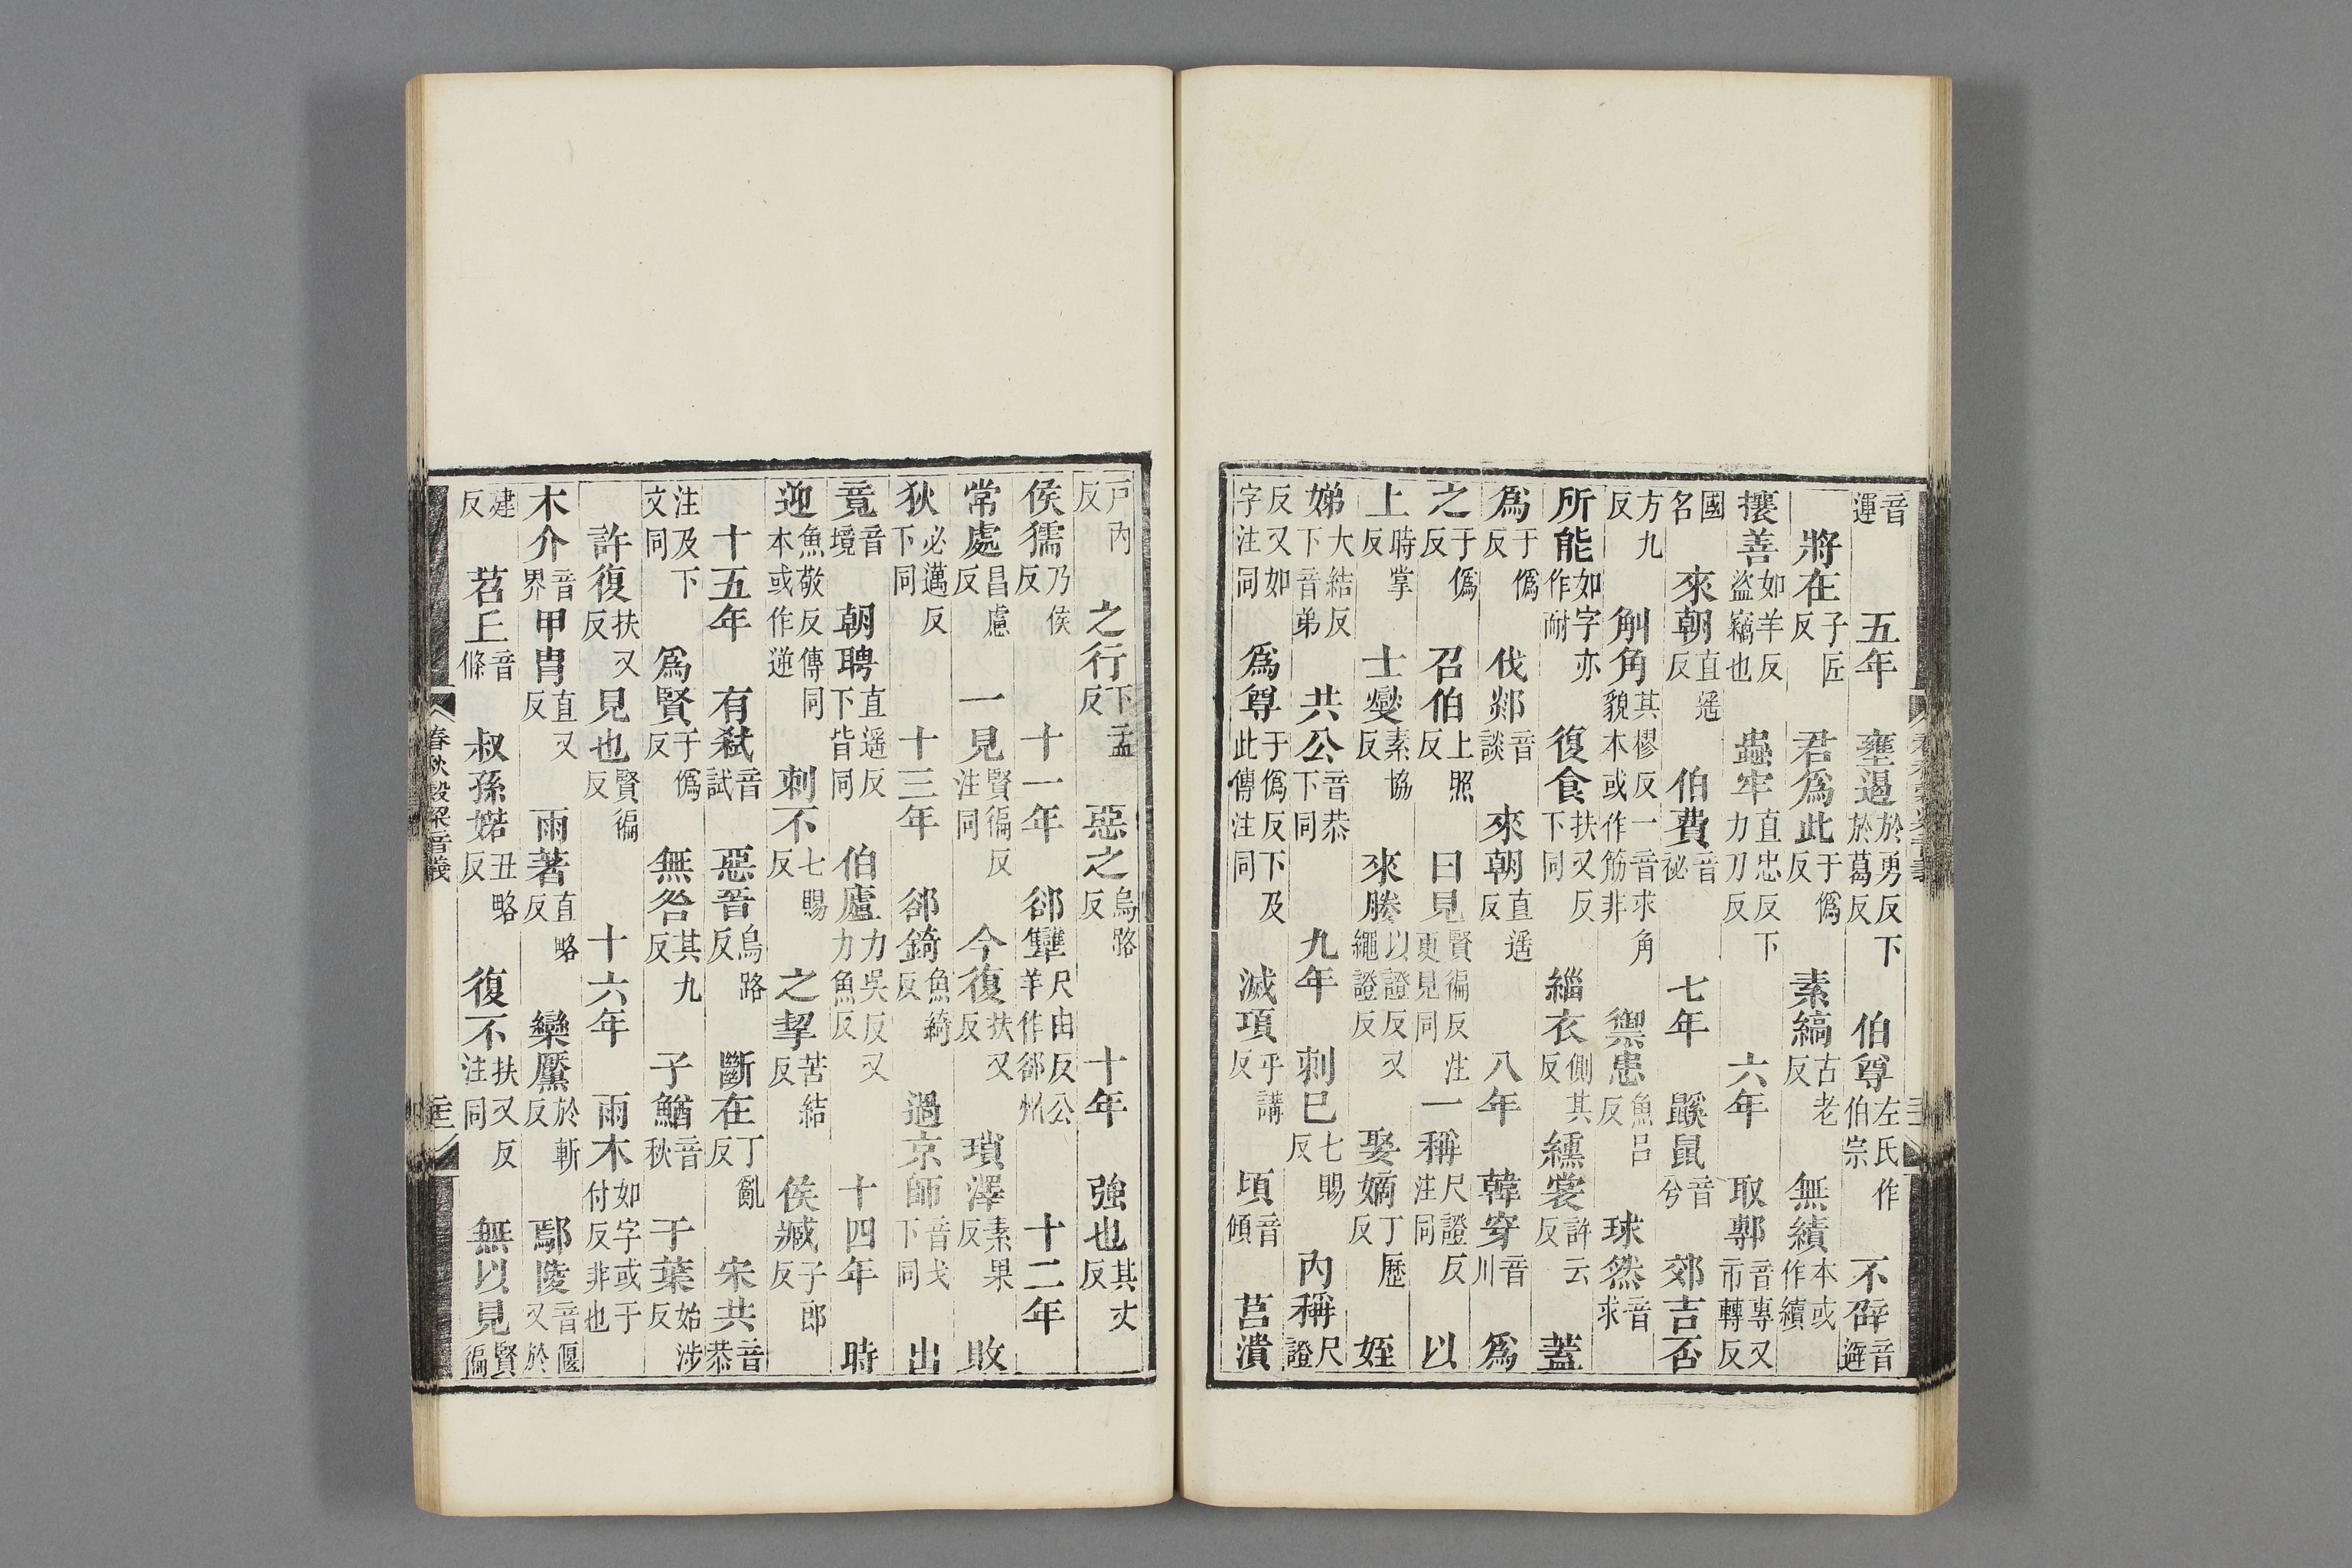 音運　五年　壅遏於勇反下於葛反　伯尊左氏作伯宗　不辟音避
將在子匠反　君爲此于僞反　素縞古老反　無績本或作續
攘善如羊反盜竊也　蟲牢直忠反下力刀反　六年　取鄟音專又市轉反
國名　來朝直遥反　伯費音祕　七年　鼷鼠音兮　郊吉否
方九反　斛角其樛反一音求角貌本或作筋非　禦患魚呂反　球然音求
所能如字亦作耐　復食扶又反下同　緇衣側其反　纁裳許云反　蓋
爲于僞反　伐郯音談　來朝直遥反　八年　韓穿音川　爲
之于僞反　召伯上照反　曰見賢徧反注更見同　一稱尺證反注同　以
上時掌反　士燮素協反　來媵以證反又繩證反　娶嫡丁歷反　姪
娣大結反下音弟　共公音恭下同　九年　刺巳七賜反　內稱尺證
反又如字注同　爲尊于僞反下及此傳注同　滅項乎講反　頃音傾　莒潰
戸內反　之行下孟反　惡之烏路反　十年　強也其丈反
侯獳乃侯反　十一年　郤犨尺由反公羊作郤州　十二年
常處昌慮反　一見賢徧反注同　今復扶又反　瑣澤素果反　敗
狄必邁反下同　十三年　郤錡魚綺反　過京師音戈下同　出
竟音境　朝聘直遥反下皆同　伯廬力吳反又力魚反　十四年　時
迎魚敬反傳同本或作逆　刺不七賜反　之挈苦結反　侯臧子郎反
十五年　有弒音試　惡晉烏路反　斷在丁亂反　宋共音恭
注及下文同　爲賢于僞反　無咎其九反　子鰌音秋　于葉始涉反
許復扶又反　見也賢徧反　十六年　雨木如字或于付反非也
木介音界　甲冑直又反　雨著直略反　欒黶於斬反　鄢陵音偃又於
建反　苕丘音條　叔孫婼丑略反　復不扶又反注同　無以見賢徧
春秋穀梁音義